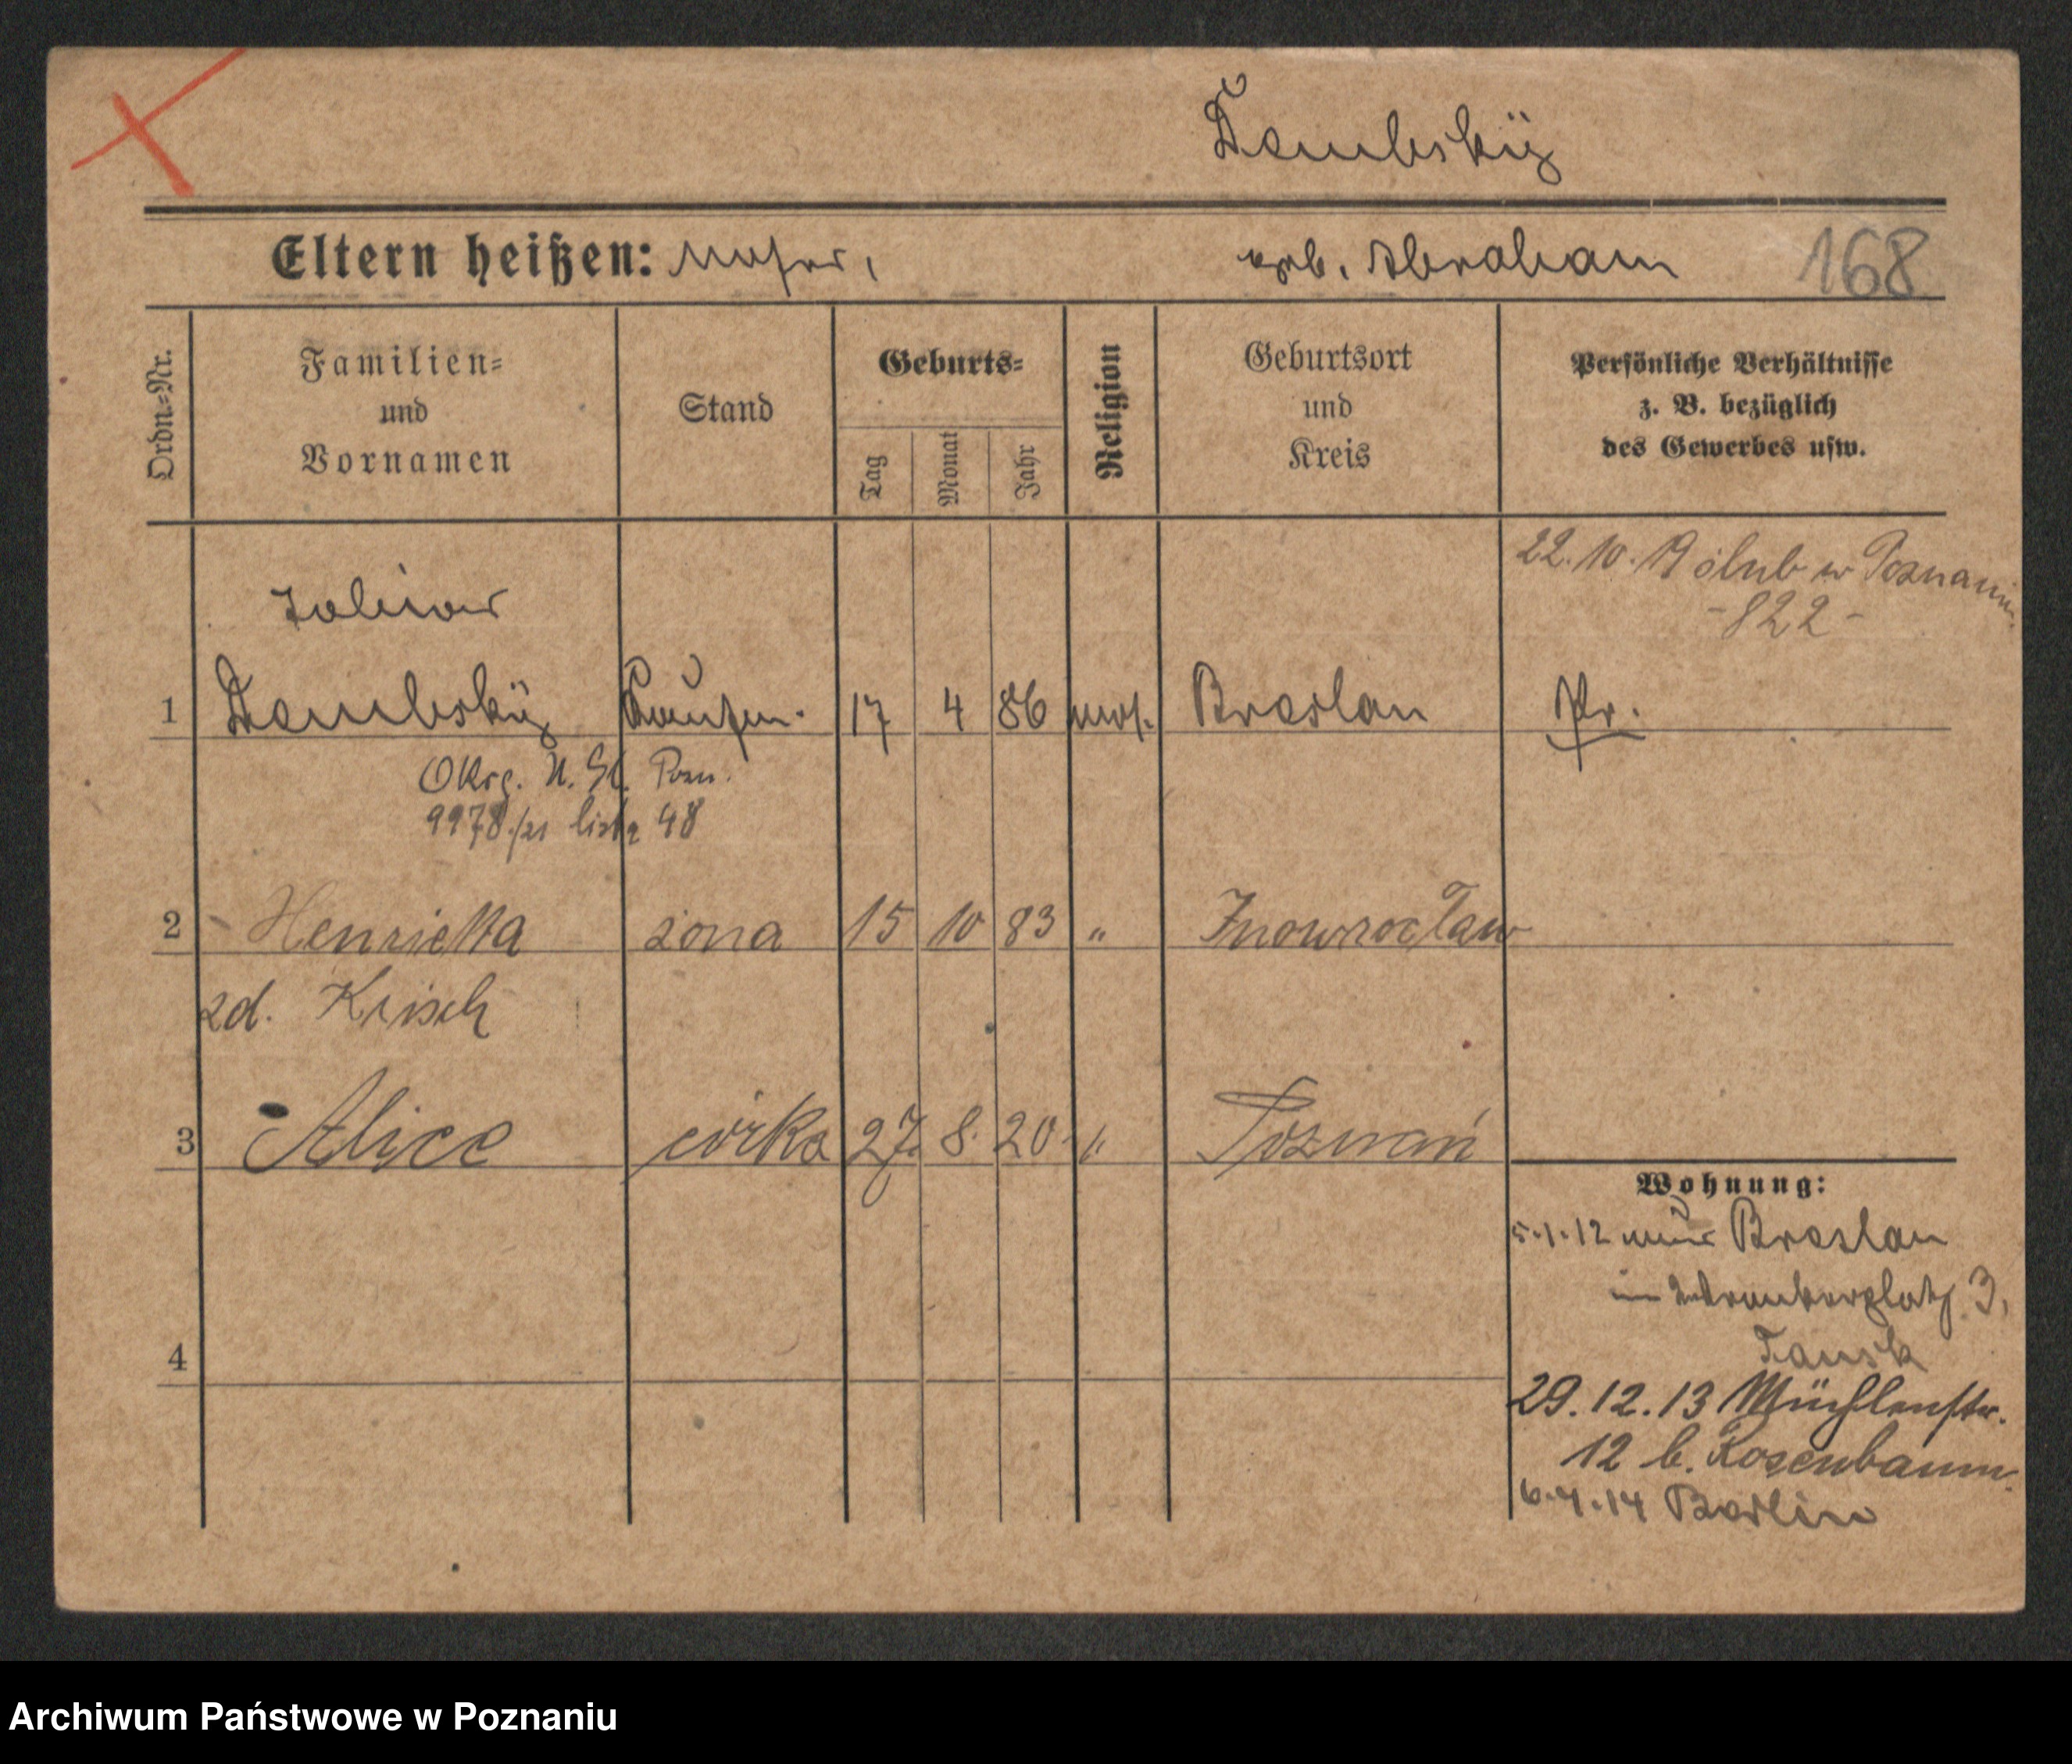 Dembsky
Eltern heißen: geb. Abraham 168
Ordn.-Nr.
Familien=
und
Vornamen
Stand
Geburts=
Tag
Monat
Jahr
Religion
Geburtsort
und
Kreis
Persönliche Verhältnisse
z. B. bezüglich
des Gewerbes usw.
22. 10. 19 ślub w Poznaniu
-822-
1 Dembsky Kaufm. 17 4 86 mos. Breslau Pr.
Okrę. U. St. Pozn.
9978/21 lista 48
2 Henrietta żona 15 10 83 " Inowrocław
zd. Krisch
3 Alice córka 27. 8. 20. " Poznań
Wohnung:
5.1.12 Breslau
3,
Tausk
4
29.12.13 Mühlenstr.
12 b. Rosenbaum.
6.4.14 Berlin
Archiwum Państwowe w Poznaniu